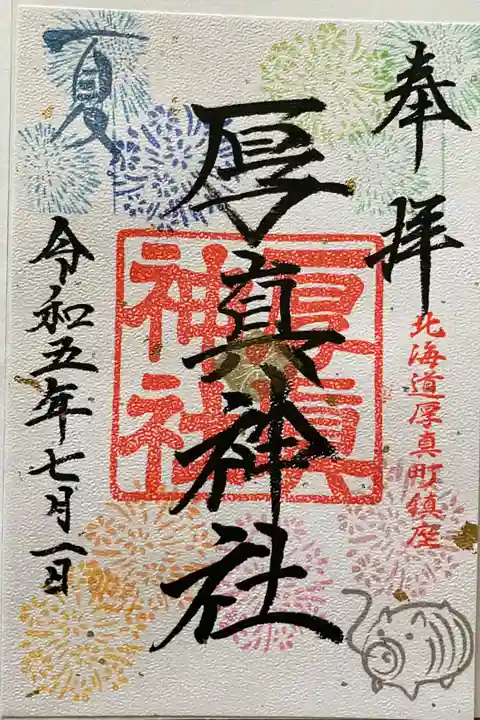 奉拝
北海道厚真町鎮座
厚真神社
厚真
神社
夏
令和五年七月一日